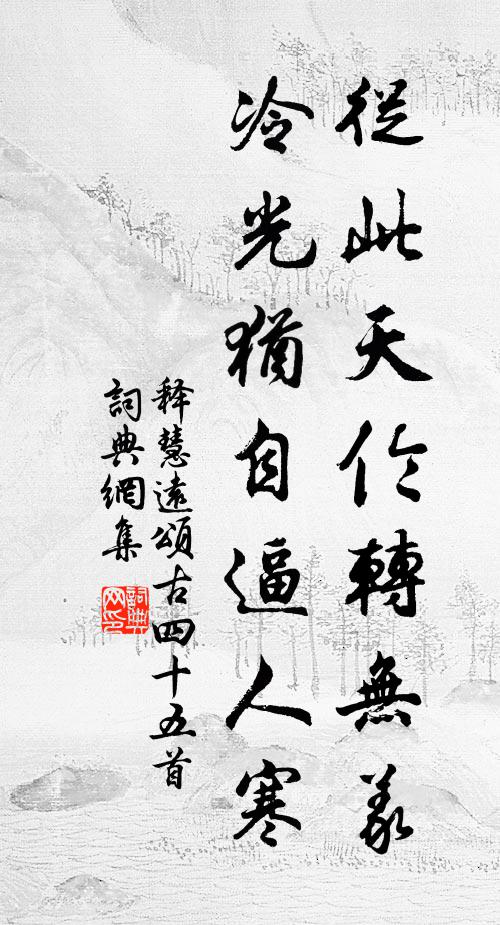 從此天轉無義
冷光猶自逼人寒
释慧遠頌古四十五首
詞典網集
詞典
网印